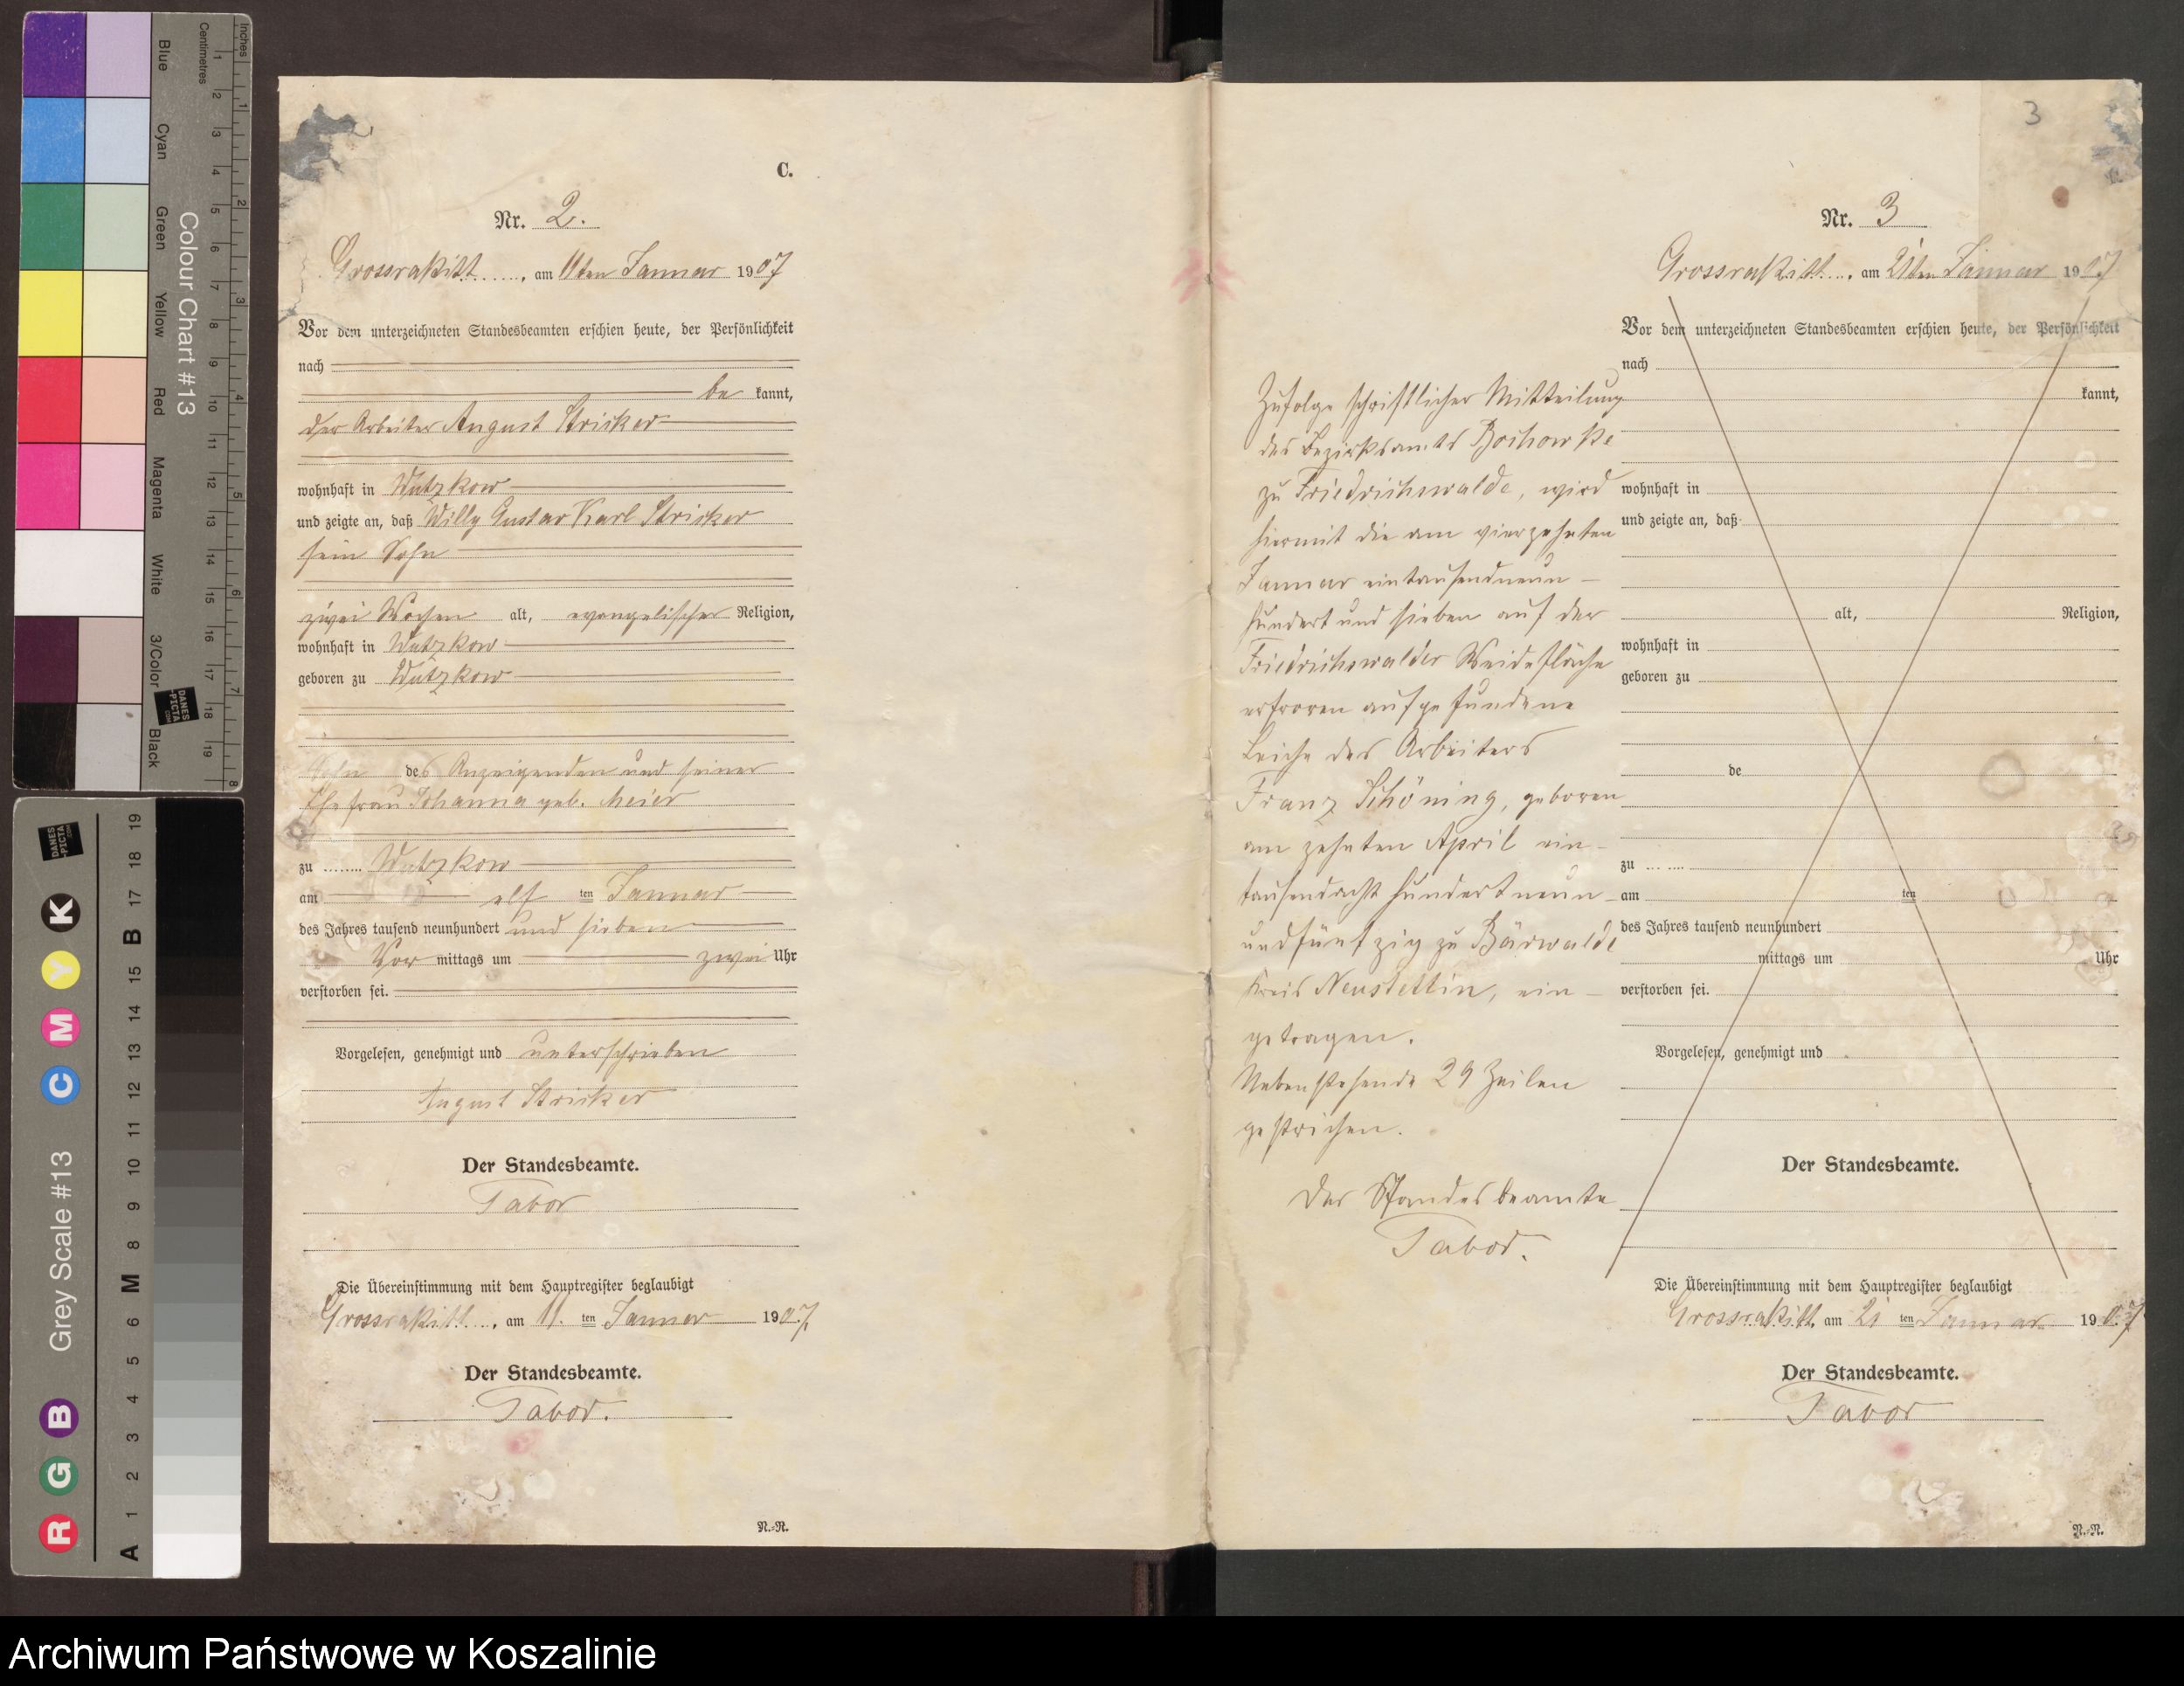 C.
Nr. 2.
Grossrakitt, am 11ten Januar 1907
Vor dem unterzeichneten Standesbeamten erschien heute, der Persönlichkeit
nach
be kannt,
der Arbeiter August Stricker
wohnhaft in Wutzkow
und zeigte an, daß Willy Gustav Karl Stricker
sein Sohn
zwei Wochen alt, evangelischer Religion,
wohnhaft in Wutzkow
geboren zu Wutzkow
Sohn des Anzeigenden und seiner
Ehefrau Johanna geb. Meier
zu Wutzkow
am elf ten Januar
des Jahres tausend neunhundert und sieben
Vor mittags um zwei Uhr
verstorben sei.
Vorgelesen, genehmigt und unterschrieben
August Stricker
Der Standesbeamte.
Tabor
Die Übereinstimmung mit dem Hauptregister beglaubigt
Grossrakitt, am 11. ten Januar 1907.
Der Standesbeamte.
Tabor.
N.-N.
3
Nr. 3
Grossrakitt, am 21ten Januar 1907
Vor dem unterzeichneten Standesbeamten erschien heute, der Persönlichkeit
nach
kannt,
wohnhaft in
und zeigte an, daß
alt, Religion,
wohnhaft in
geboren zu
de
zu
am ten
des Jahres tausend neunhundert
mittags um Uhr
verstorben sei.
Vorgelesen, genehmigt und
Der Standesbeamte.
Zufolge schriftlicher Mitteilung
des Bezirksamts Bochowke
zu Friedrichswalde, wird
hiermit die am vierzehnten
Januar eintausendneun-
hundert und sieben auf der
Friedrichswalder Weidefläche
erfroren aufgefundene
Leiche des Arbeiters
Franz Schöning, geboren
am zehnten April ein-
tausendacht hundert neun-
undfünfzig zu Bärwalde
Kreis Neustettin, ein-
getragen.
Nebenstehende 29 Zeilen
gestrichen.
Der Standesbeamte
Tabor.
Die Übereinstimmung mit dem Hauptregister beglaubigt
Grossrakitt, am 21 ten Januar 1907
Der Standesbeamte.
Tabor
N.-N.
Inches
Centimetres
Colour Chart #13
Blue
Cyan
Green
Yellow
Red
Magenta
White
3/Color
Black
1 2 3 4 5 6 7 8 9 10 11 12 13 14 15 16 17 18 19
1 2 3 4 5 6 7 8
DANES
-PICTA
.COM
Grey Scale #13
R G B C M Y K
A 1 2 3 4 5 6 M 8 9 10 11 12 13 14 15 B 17 18 19
DANES
-PICTA
.COM
Archiwum Państwowe w Koszalinie